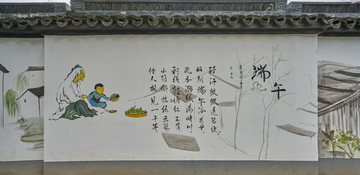 端午
轻汗微微透碧纨
明朝端午浴芳兰
流香涨腻满晴川
彩线轻缠红玉臂
小符斜挂绿云鬟
佳人相见一千年